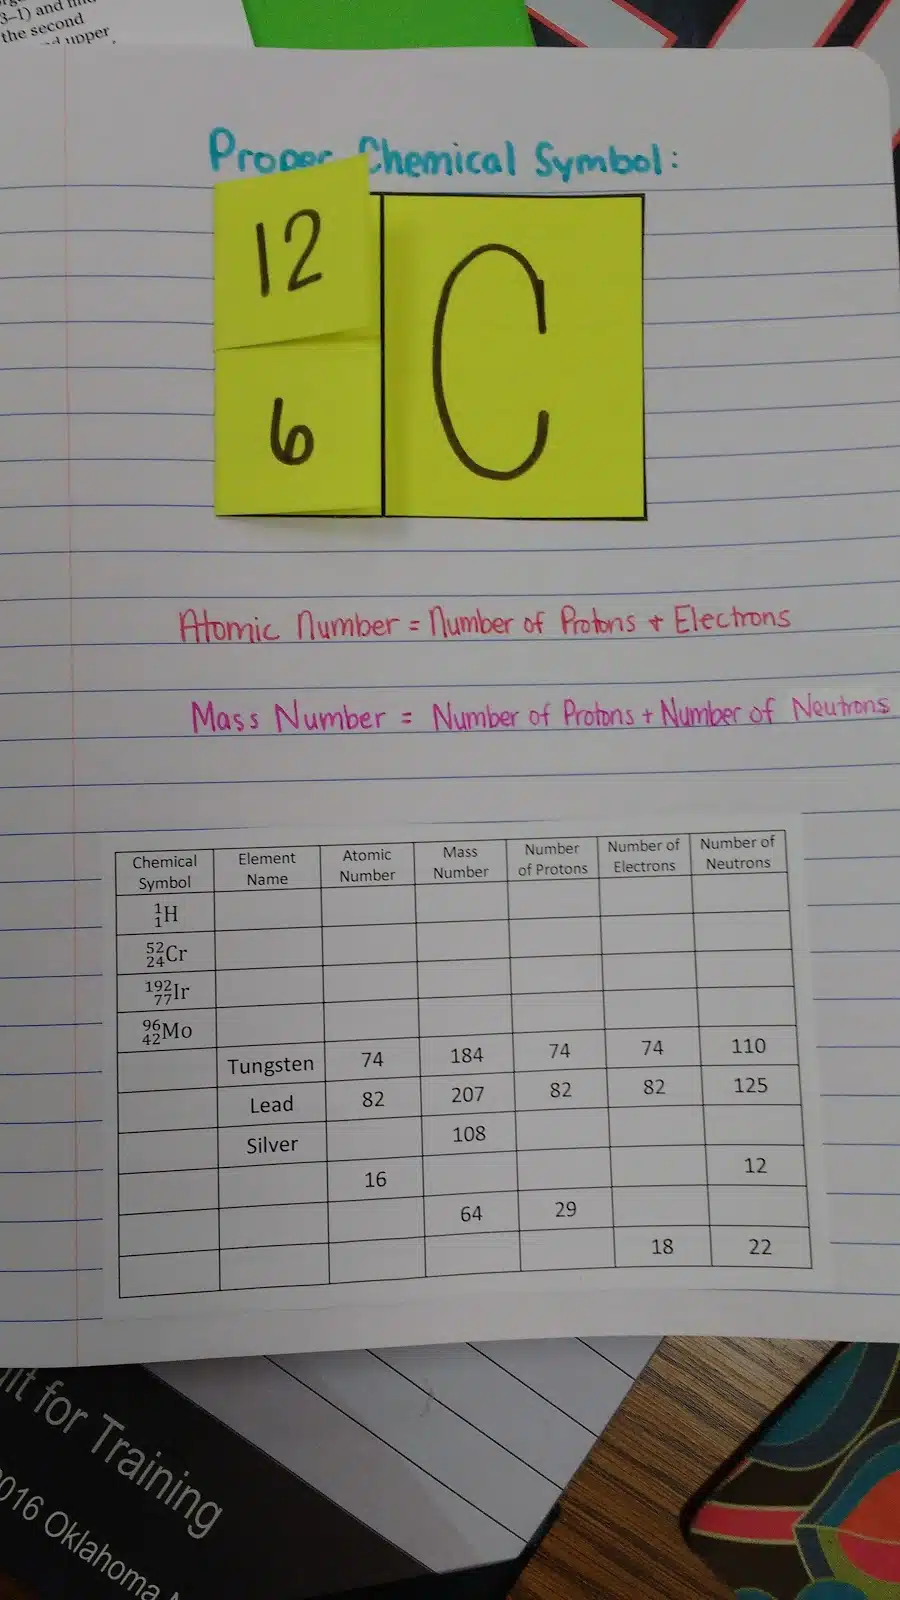 3–1) and
the second
upper
Proper Chemical Symbol:
12
6
C
Atomic Number = Number of Protons + Electrons
Mass Number = Number of Protons + Number of Neutrons
Chemical Symbol Element Name Atomic Number Mass Number Number of Protons Number of Electrons Number of Neutrons
¹₁H
⁵²₂₄Cr
¹⁹²₇₇Ir
⁹⁶₄₂Mo
Tungsten 74 184 74 74 110
Lead 82 207 82 82 125
Silver 108
16 12
64 29
18 22
it for Training
016 Oklahoma